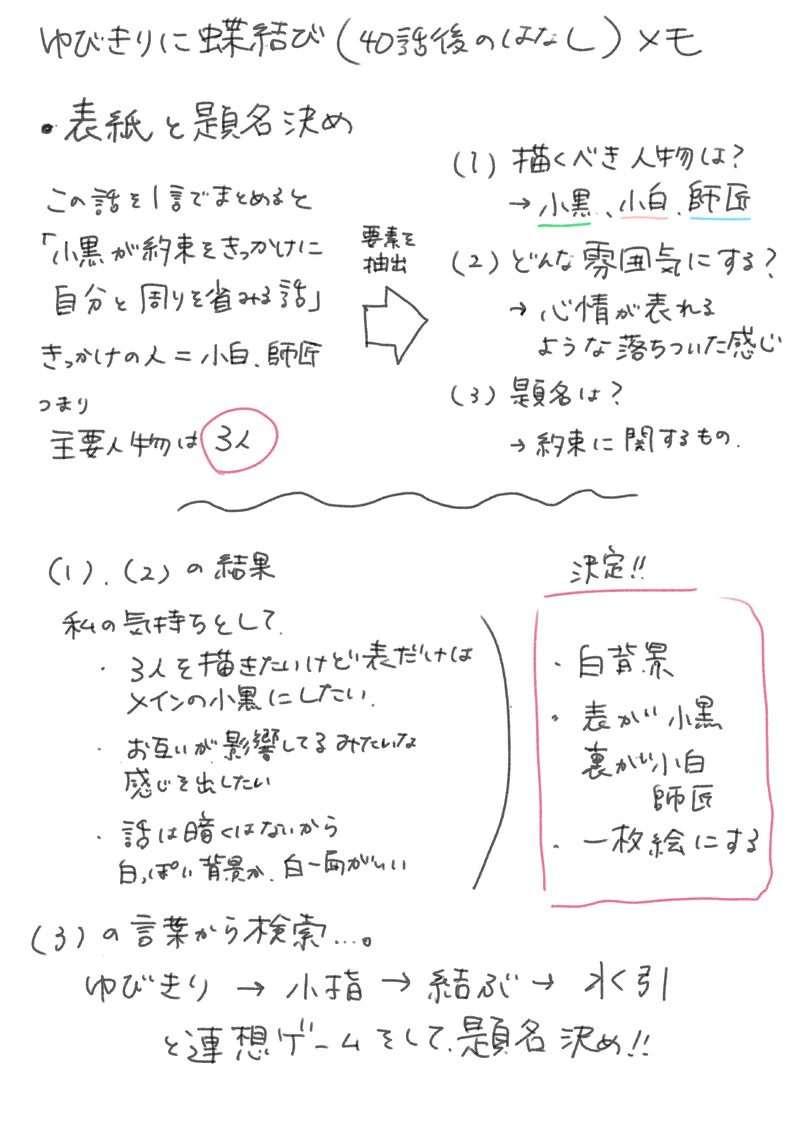 ゆびきりに蝶結び(40話後のはなし)メモ
・表紙と題名決め
この話を1言でまとめると
「小黒が約束をきっかけに
自分と周りを省みる話」
きっかけの人=小白、師匠
つまり
主要人物は3人
要素を
抽出
(1)描くべき人物は?
→小黒、小白、師匠
(2)どんな雰囲気にする?
→心情が表れる
ような落ちついた感じ
(3)題名は?
→約束に関するもの.
(1).(2)の結果
私の気持ちとして.
・3人を描きたいけど表だけは
メインの小黒にしたい.
・お互いが影響してるみたいな
感じを出したい
・話は暗くはないから
白っぽい背景か、白一面がいい
決定!!
・白背景
・表が小黒
裏が小白
師匠
・一枚絵にする
(3)の言葉から検索…。
ゆびきり→小指→結ぶ→水引
と連想ゲームをして、題名決め!!